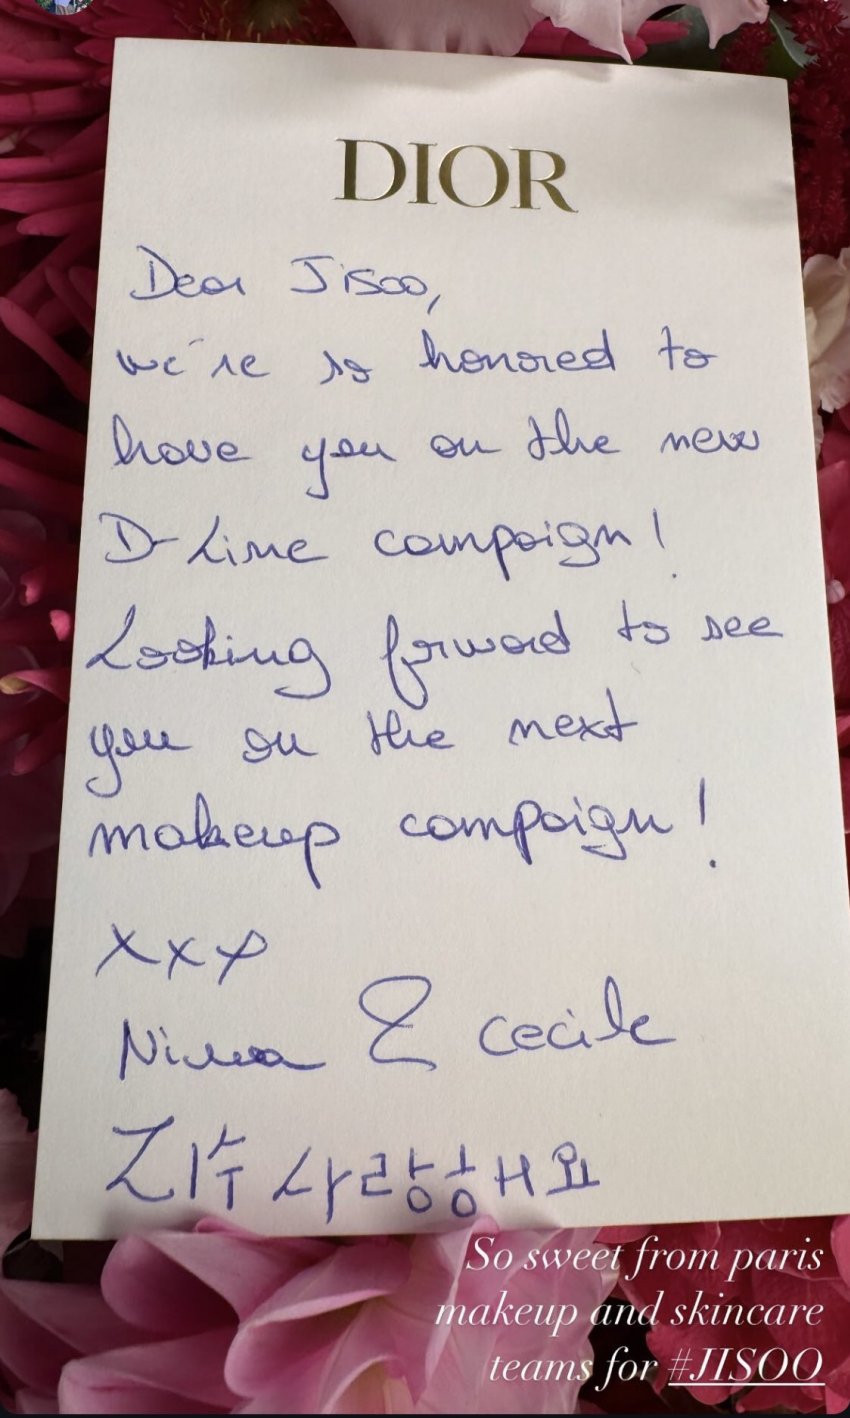 DIOR
Dear Jisoo,
we're so honored to
have you on the new
D-Line campaign!
Looking forward to see
you on the next
makeup campaign!
xxx
& Cecile
지수 사랑해요
So sweet from paris
makeup and skincare
teams for #JISOO